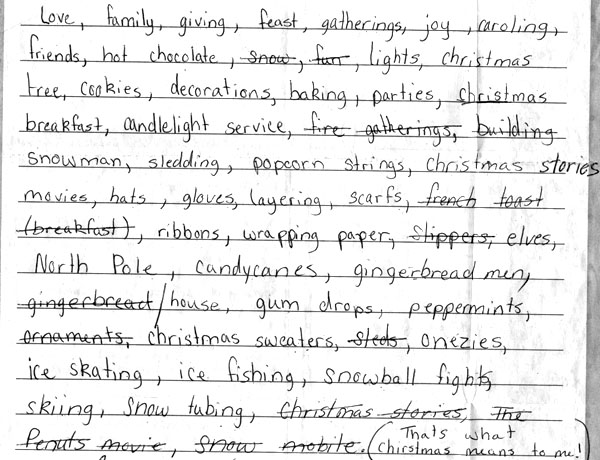 Love, family, giving, feast, gatherings, joy, caroling,
friends, hot chocolate, snow, fun, lights, christmas
tree, cookies, decorations, baking, parties, christmas
breakfast, candlelight service, fire gatherings, building
snowman, sledding, popcorn strings, christmas stories
movies, hats, gloves, layering, scarfs, french toast
(breakfast), ribbons, wrapping paper, slippers, elves,
North Pole, candycanes, gingerbread men,
gingerbread/house, gum drops, peppermints,
ornaments, christmas sweaters, sleds, onezies,
ice skating, ice fishing, snowball fights,
skiing, snow tubing, christmas stories, The
Penuts movie, snow mobile. (Thats what
chirstmas means to me!